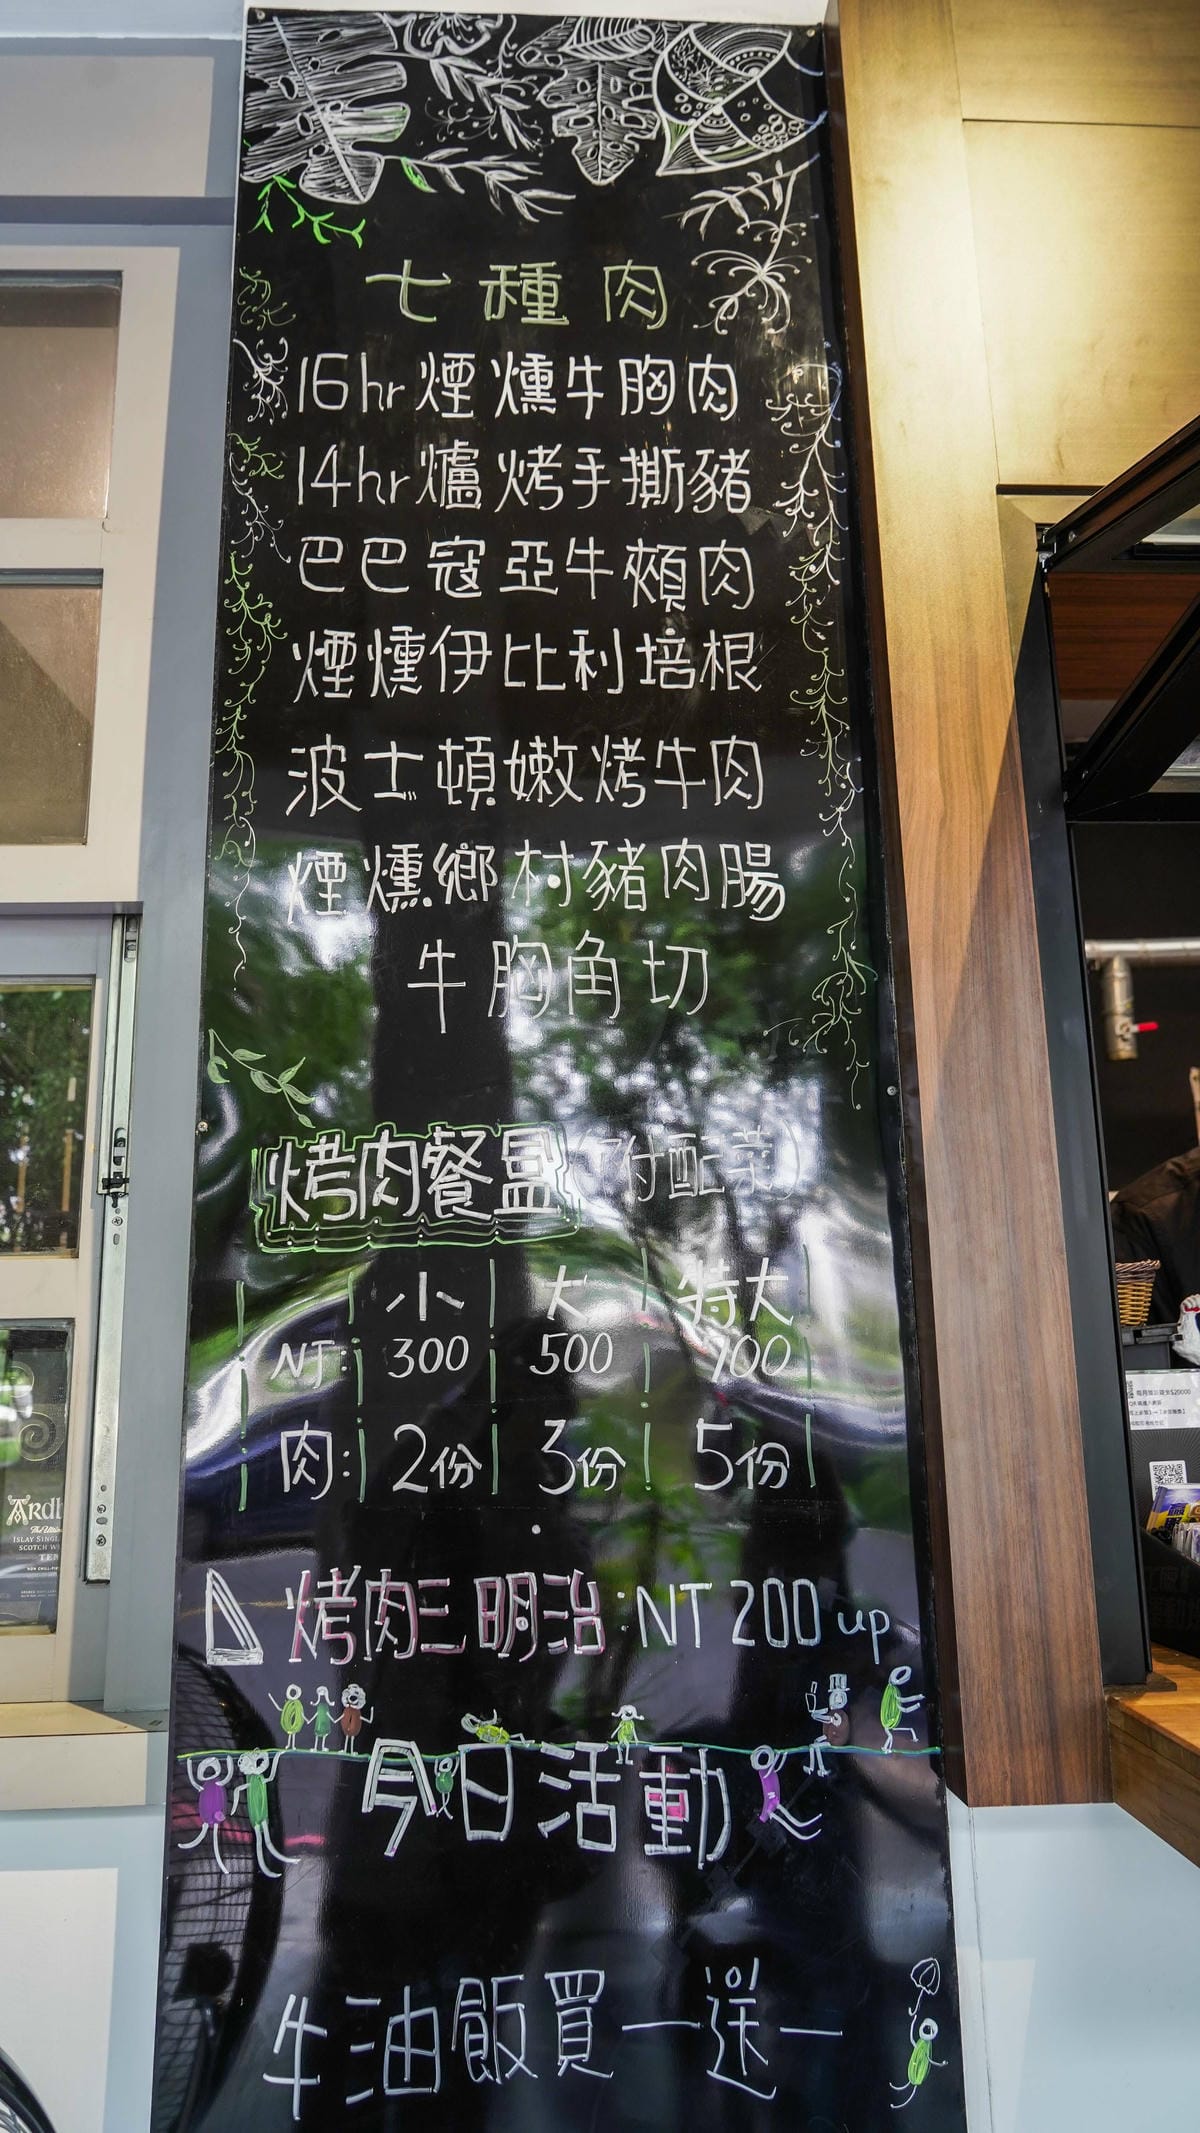 七種肉
16hr煙燻牛胸肉
14hr爐烤手撕豬
巴巴寇亞牛頰肉
煙燻伊比利培根
波士頓嫩烤牛肉
煙燻鄉村豬肉腸
牛胸角切
烤肉餐盒(附配菜)
小 大 特大
NT: 300 500 700
肉: 2份 3份 5份
烤肉三明治:NT 200 up
今日活動
牛油飯買一送一
ISLAY SINGL
SCOTCH W
TEN